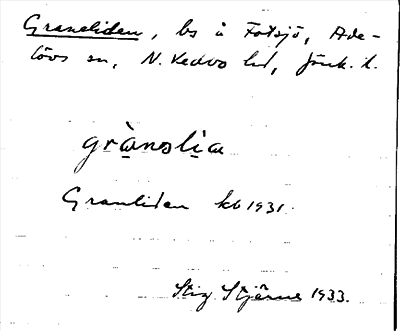 Graneliden, bs å Fotsjö, Ade-
lövs sn, N. Vedbo hd, Jönk. l.
grànslia
Granliden kb 1931.
Stig Stjärne 1933.